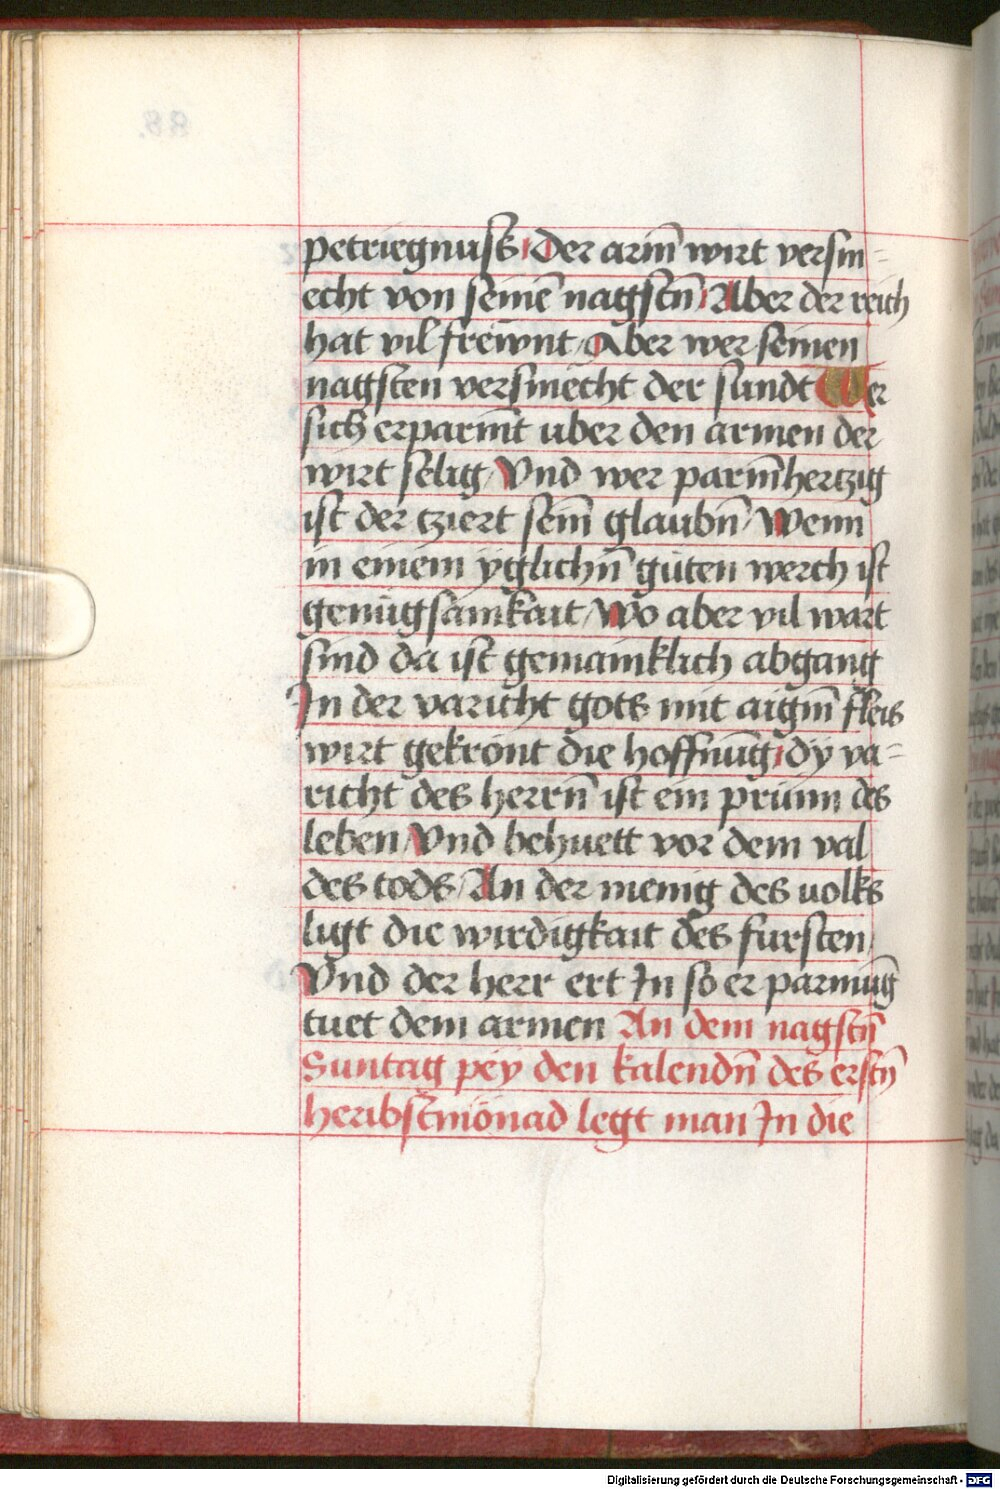 petriegnuss / Der arm̄ wirt versm=
echt von seinē nagstn̄ / Aber der reich
hat vil frewnt / Aber wer seinen
nagsten versmecht der sundt Wer
sich erparmt uber den armen der
wirt selig / Vnd wer parm̄hertzig
ist der tziert sein̄ glaubn̄ / Wenn
in einem ÿglichn̄ gůten werch ist
genůgsamkait / Wo aber vil wart
sind da ist gemainklich abgang
In der varicht gots mit aigm̄ fleis
wirt gekrönt die hoffnūg / dÿ va=
richt des herrn̄ ist ein prunn des
leben / Vnd behuett vor dem val
des tods / An der menig des uolks
ligt die wirdigkait des fursten /
Vnd der herr ert In so er parmūg
tuet dem armen An dem nagstn̄
Suntag pey den kalendn̄ des erstn̄
heribstmonad legt man In die
Digitalisierung gefördert durch die Deutsche Forschungsgemeinschaft - DFG